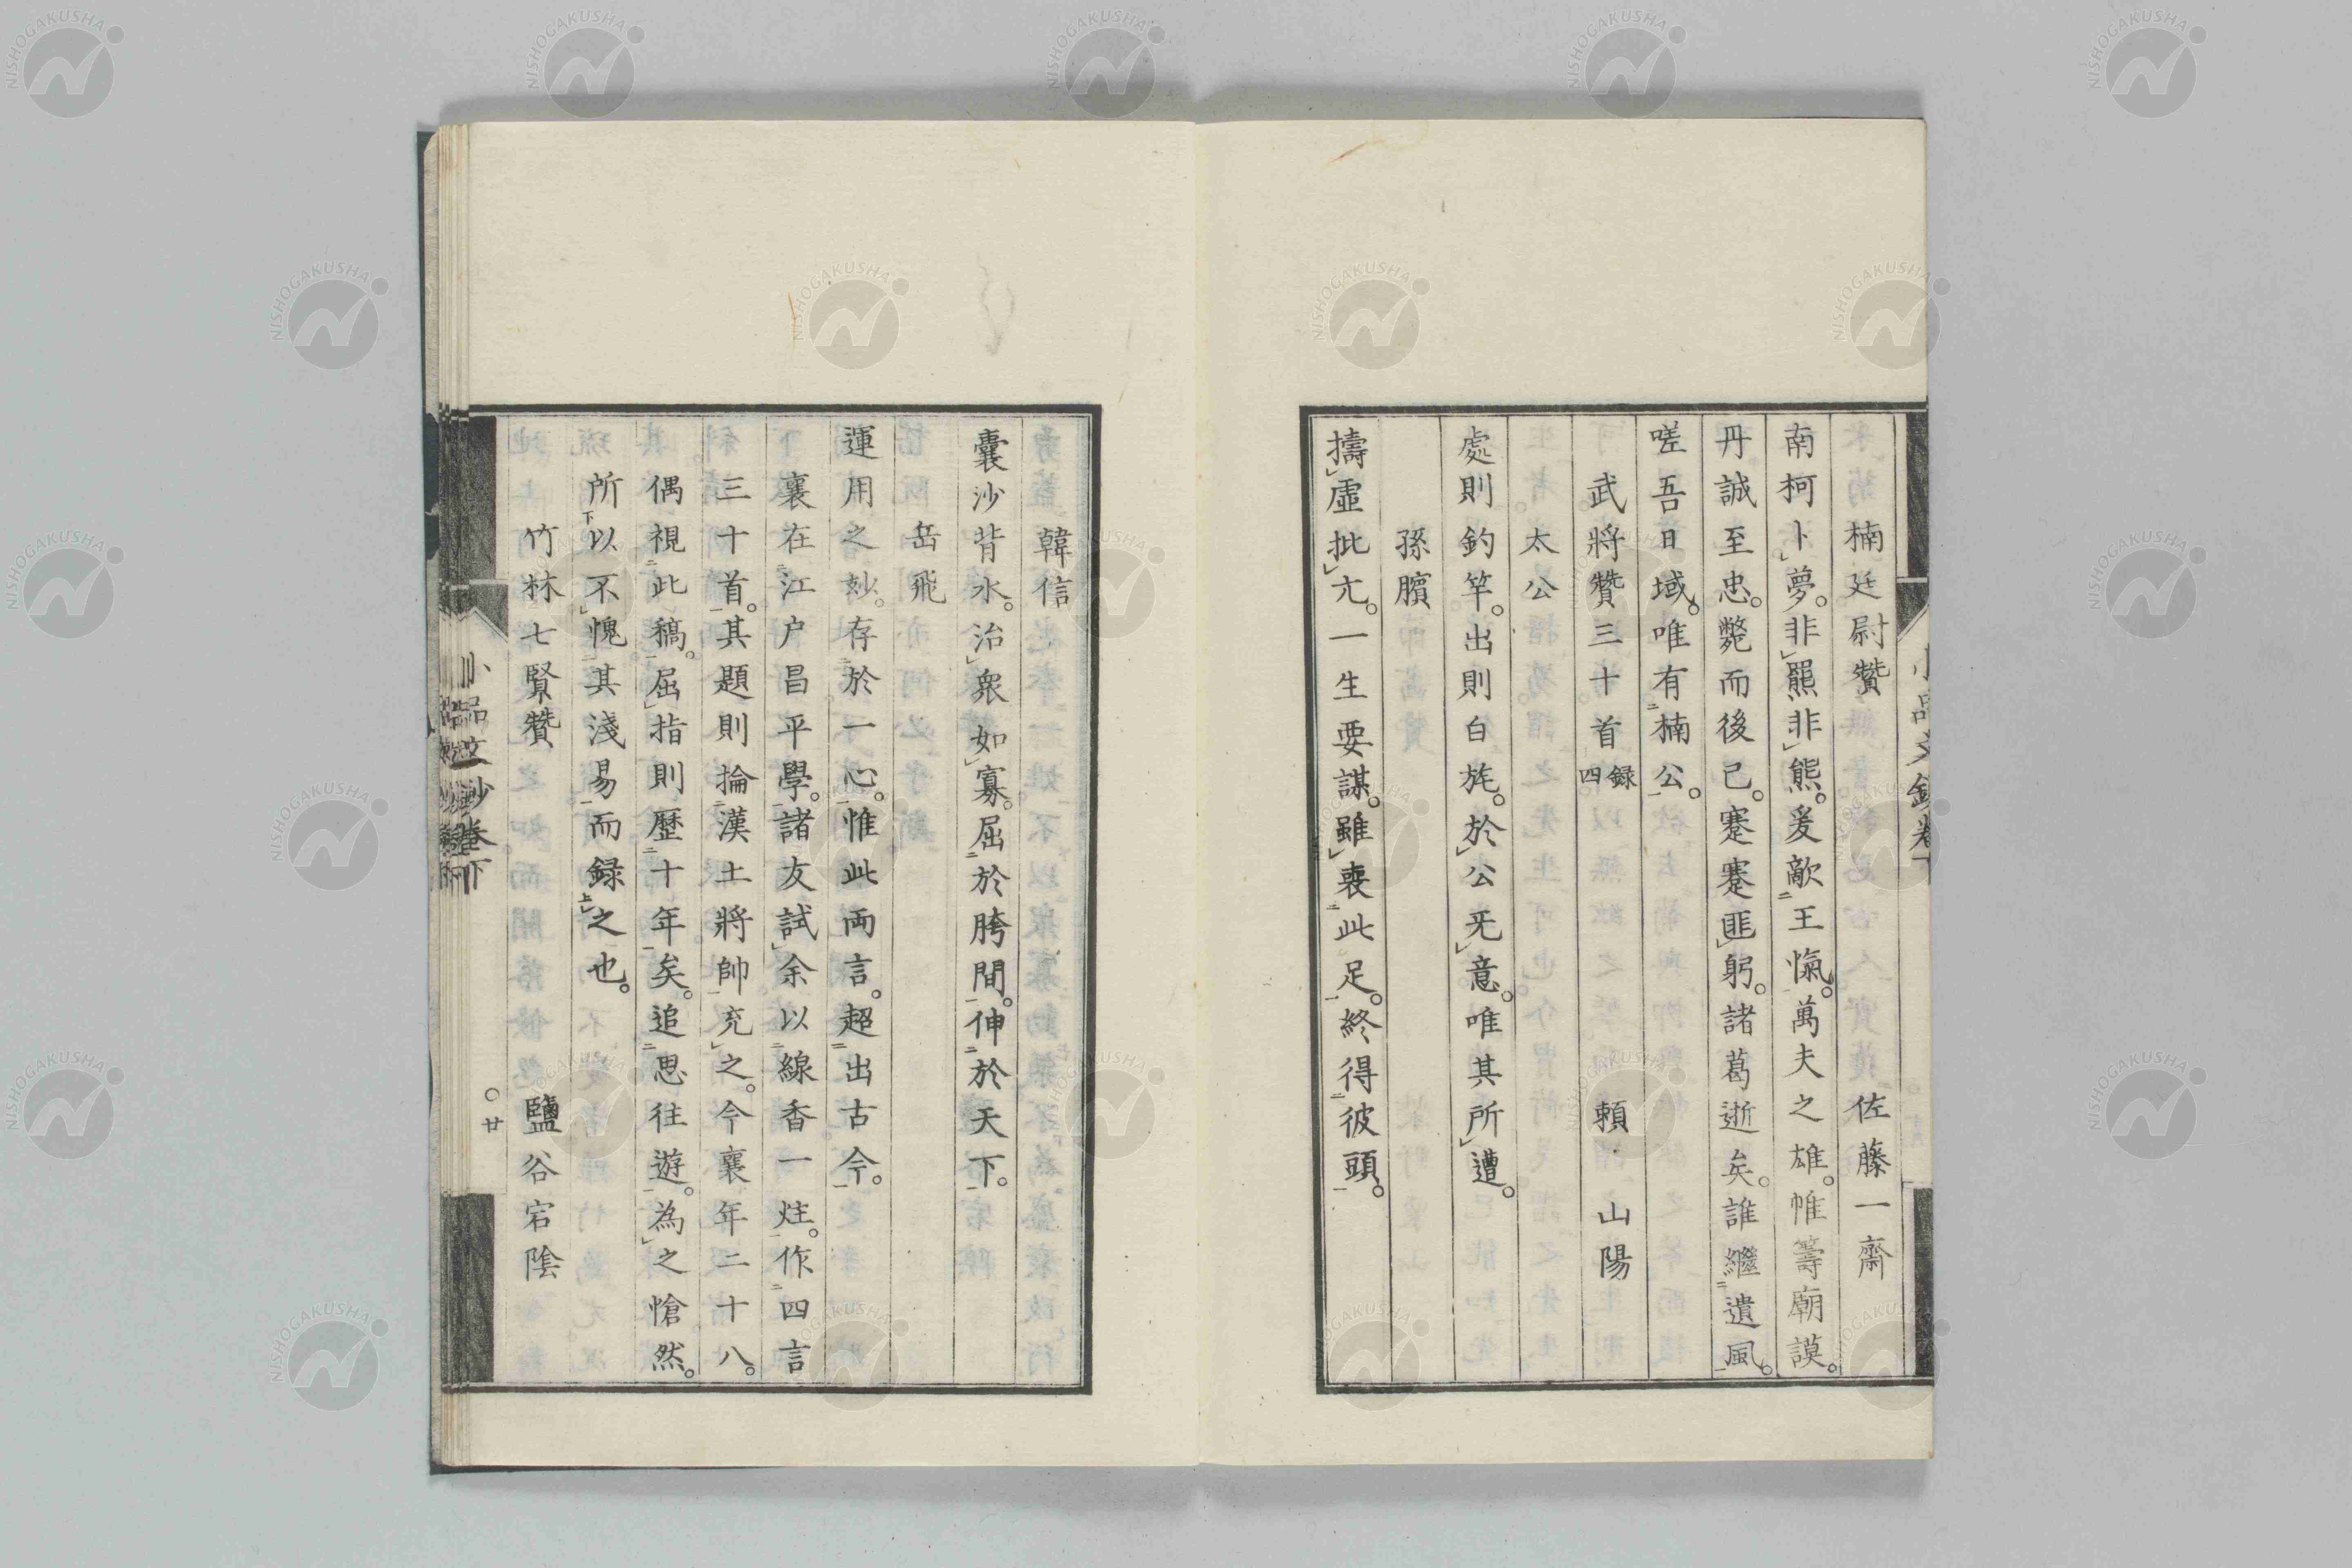 楠廷尉贊　佐藤一齋
南柯卜夢。非羆非熊。爰敵王愾。萬夫之雄。帷籌廟謨。
丹誠至忠。斃而後已。蹇蹇匪躬。諸葛逝矣。誰繼遺風。
嗟吾日域。唯有楠公。
武將贊三十首　錄四　賴山陽
太公
處則釣竿。出則白旄。於公无意。唯其所遭。
孫臏
擣虛批亢。一生要謀。雖喪此足。終得彼頭。
韓信
囊沙背水。治衆如寡。屈於胯間。伸於天下。
岳飛
運用之玅。存於一心。惟此兩言。超出古今。
襄在江戶昌平學。諸友試余以線香一炷。作四言
三十首。其題則掄漢土將帥充之。今襄年二十八。
偶視此稿。屈指則歷十年矣。追思往遊。為之愴然。
所以不愧其淺易而錄之也。
竹林七賢贊　鹽谷宕陰
小品文鈔卷下　〇廿
NISHOGAKUSHA